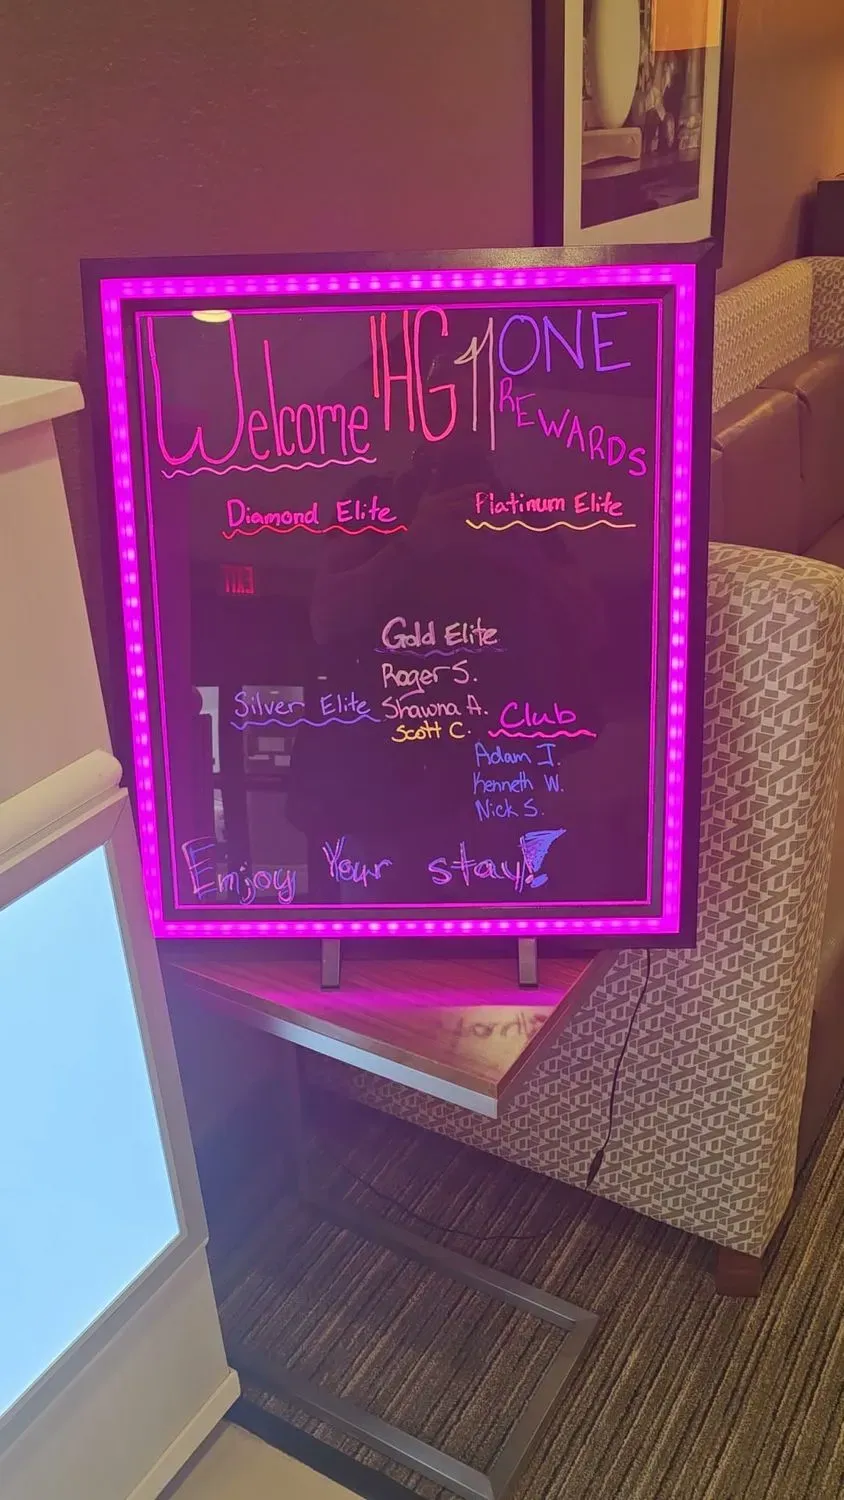 Welcome IHG ONE
REWARDS
Diamond Elite
Platinum Elite
EXIT
Gold Elite
Roger S.
Shawna A.
Scott C.
Silver Elite
Club
Adam J.
Kenneth W.
Nick S.
Enjoy Your stay!